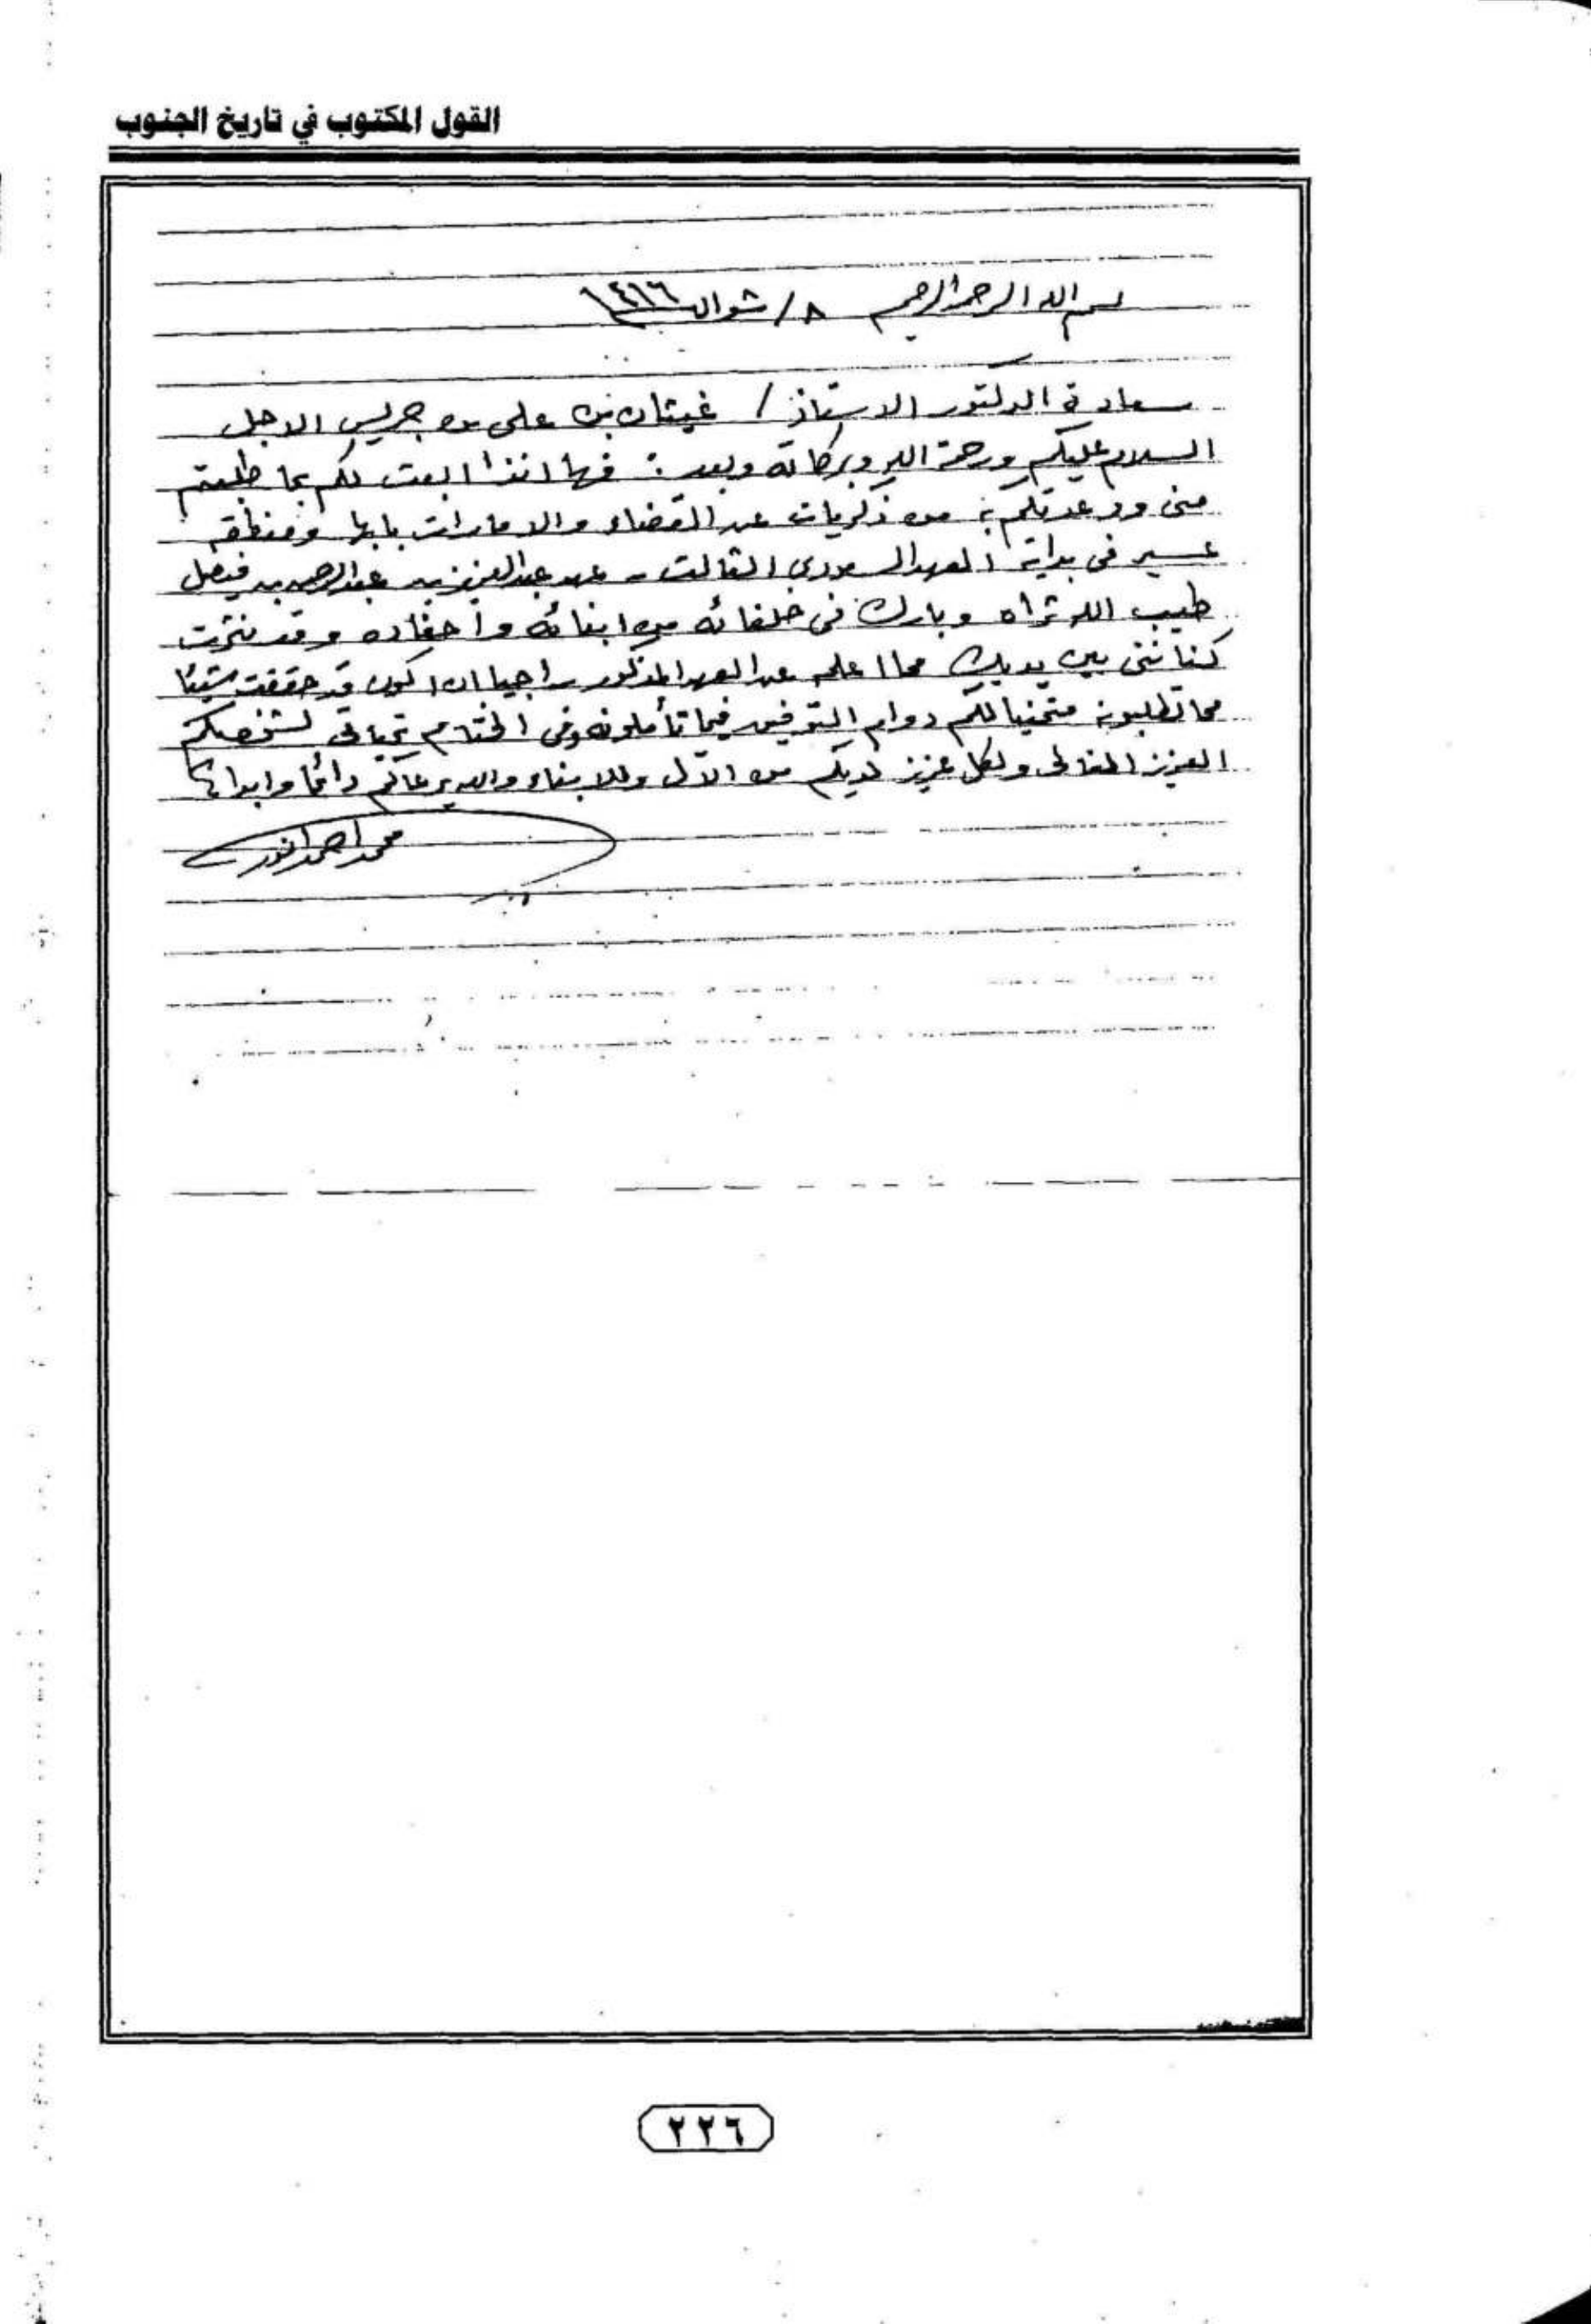 القول المكتوب في تاريخ الجنوب
بسم الله الرحمن الرحيم ٨/ شوال ١٤١٦
سعادة الدكتور الاستاذ / غيثان بن على بن جريس الاجل
السلام عليكم ورحمة الله وبركاته وبعد : فها انذا ابعث لكم بما طلبتم
منى ووعدتكم به من ذكريات عن القضاء والامارات بابها ومنطقة
عسير فى بداية العهد السعودي الثالث - عهد عبدالعزيز بن عبدالرحمن بن فيصل
طيب الله ثراه وبارك فى خلفائه من ابنائه وأحفاده وقد نثرت
كنانتى بين يديك مما اعلم عن العهد المذكور راجيا ان اكون قد حققت شيئا
مما تطلبونه متمنيا لكم دوام التوفيق فيما تأملونه وفى الختام تحياتى لشخصكم
العزيز الغالى ولكل عزيز لديكم من الآل وللابناء والله يرعاكم دائما وابدا
محمد احمد انور
٢٢٦